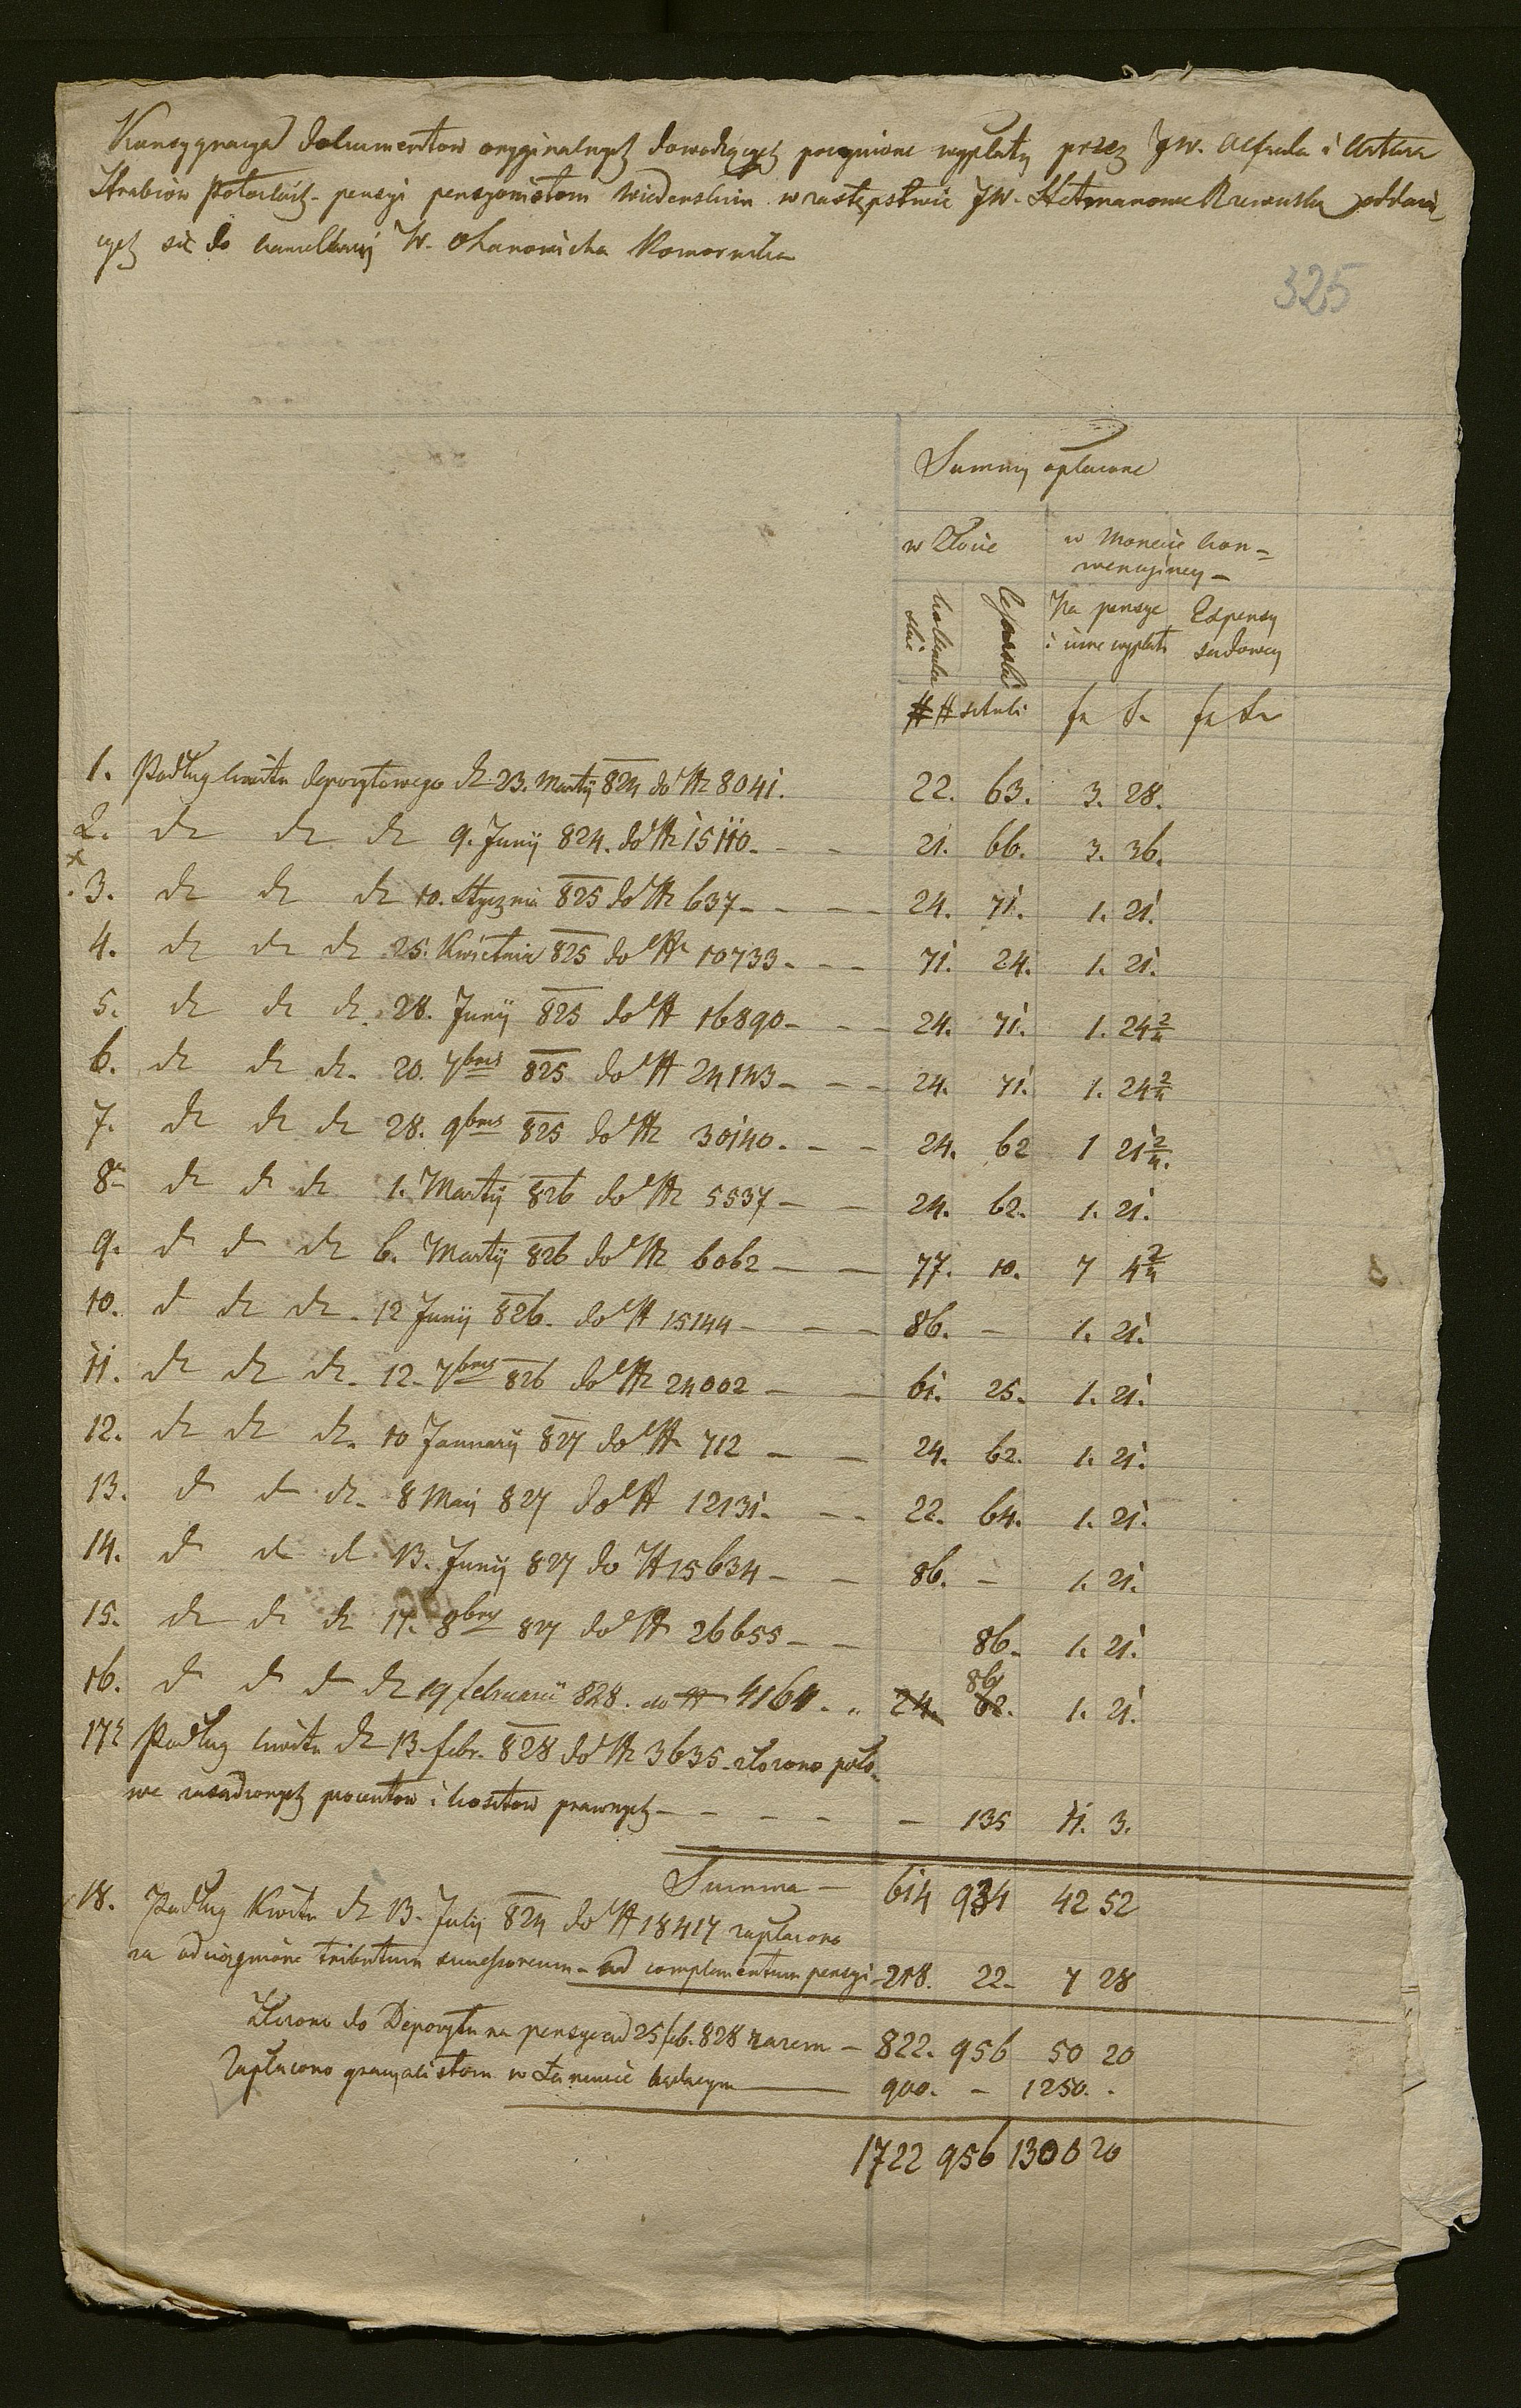 Konsygnacya dokumentow oryginalnych dowodzących poczynione wypłaty przez JW. Alfreda i Artura
Hrabiow Potockich pensyi pensyonistom Wiedenskim w zastępstwie JW. Hetmanowe Rzewuska oddaią
cych się do kancellaryi W. Ohanowicha Komornika
325
Summy opłacone
w Złocie
w Monecie kon-
wencyiney -
hollender
skie
Cesarskie
Na pensye
i inne wypłaty
Expensy
sadowey
## # sztuki fr Xr fr Xr
1. Podług kwitu depozytowego dto 23. Martij 824 do Nr 8041. 22. 63. 3. 28.
2. dto dto dto 9. Junij 824. do Nr 15110. - - 21. 66. 3. 36.
x
3. dto dto dto 10. Stycznia 825 do Nr 637 - - - - 24. 71. 1. 21.
4. dto dto dto 25. Kwietnia 825 do Nr 10733 - - - 71. 24. 1. 21.
5. dto dto dto 28. Junij 825 do Nr 16890 - - - 24. 71. 1. 24 2/4
6. dto dto dto 20. 7bris 825 do Nr 24143 - - - 24. 71. 1. 24 2/4
7. dto dto dto 28. 9bris 825 do Nr 30140. - - - 24. 62 1 21 2/4.
8. dto dto dto 1. Martij 826 do Nr 5537 - - 24. 62. 1. 21.
9. dto dto dto 6. Martij 826 do Nr 6062 - - 77. 10. 7 4 2/4
10. dto dto dto 12 Junij 826. do Nr 15144 - - - 86. - 1. 21.
11. dto dto dto 12. 7bris 826 do Nr 24002 - - 61. 25. 1. 21.
12. dto dto dto 10 January 827 do Nr 712 - - 24. 62. 1. 21.
13. dto dto dto 8 Maij 827 do Nr 12131. - - 22. 64. 1. 21.
14. dto dto dto 13. Junij 827 do Nr 15634 - - 86. - 1. 21.
15. dto dto dto 17. 8bris 827 do Nr 26655 - - 86. 1. 21.
86
16. dto dto dto dto 19 februarii 828. do Nr 4164. " 24. 62. 1. 21.
17. Podług kwitu dto 13. febr. 828 do Nr 3635 złozono poło-
we zasądzonych procentow i kosztow prawnych - - - - - 135 11. 3.
Summa - 614 934 42 52
18. Podług Kwitu dto 13. July 824 do Nr 18417 zapłacono
za odciągnione tributum successoreum - ad complementum pensyi - 218. 22 - 7 28
Złozono do Depozytu na pensye ad 25 feb. 828 razem - 822. 956 50 20
Zapłacono gracyalistom w Łancucie będącym - 900. - 1250. .
1722 956 1300 20